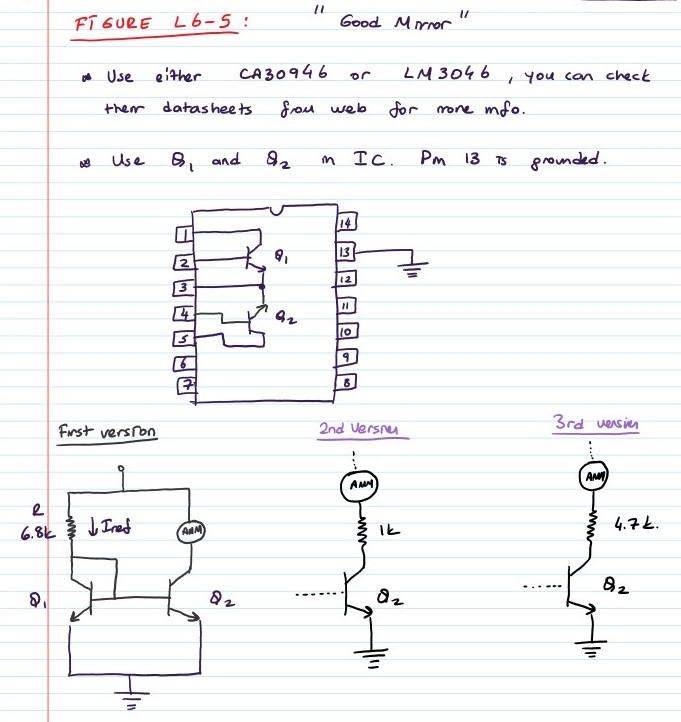 FIGURE L6-5: "Good Mirror"
* Use either CA30946 or LM3046, you can check
their datasheets from web for more info.
* Use Q1 and Q2 in IC. Pin 13 is grounded.
1
2
3
4
5
6
7
Q1
Q2
14
13
12
11
10
9
8
First version
R
6.8k
↓ Iref
AMM
Q1
Q2
2nd Version
AMM
1k
Q2
3rd version
AMM
4.7k.
Q2